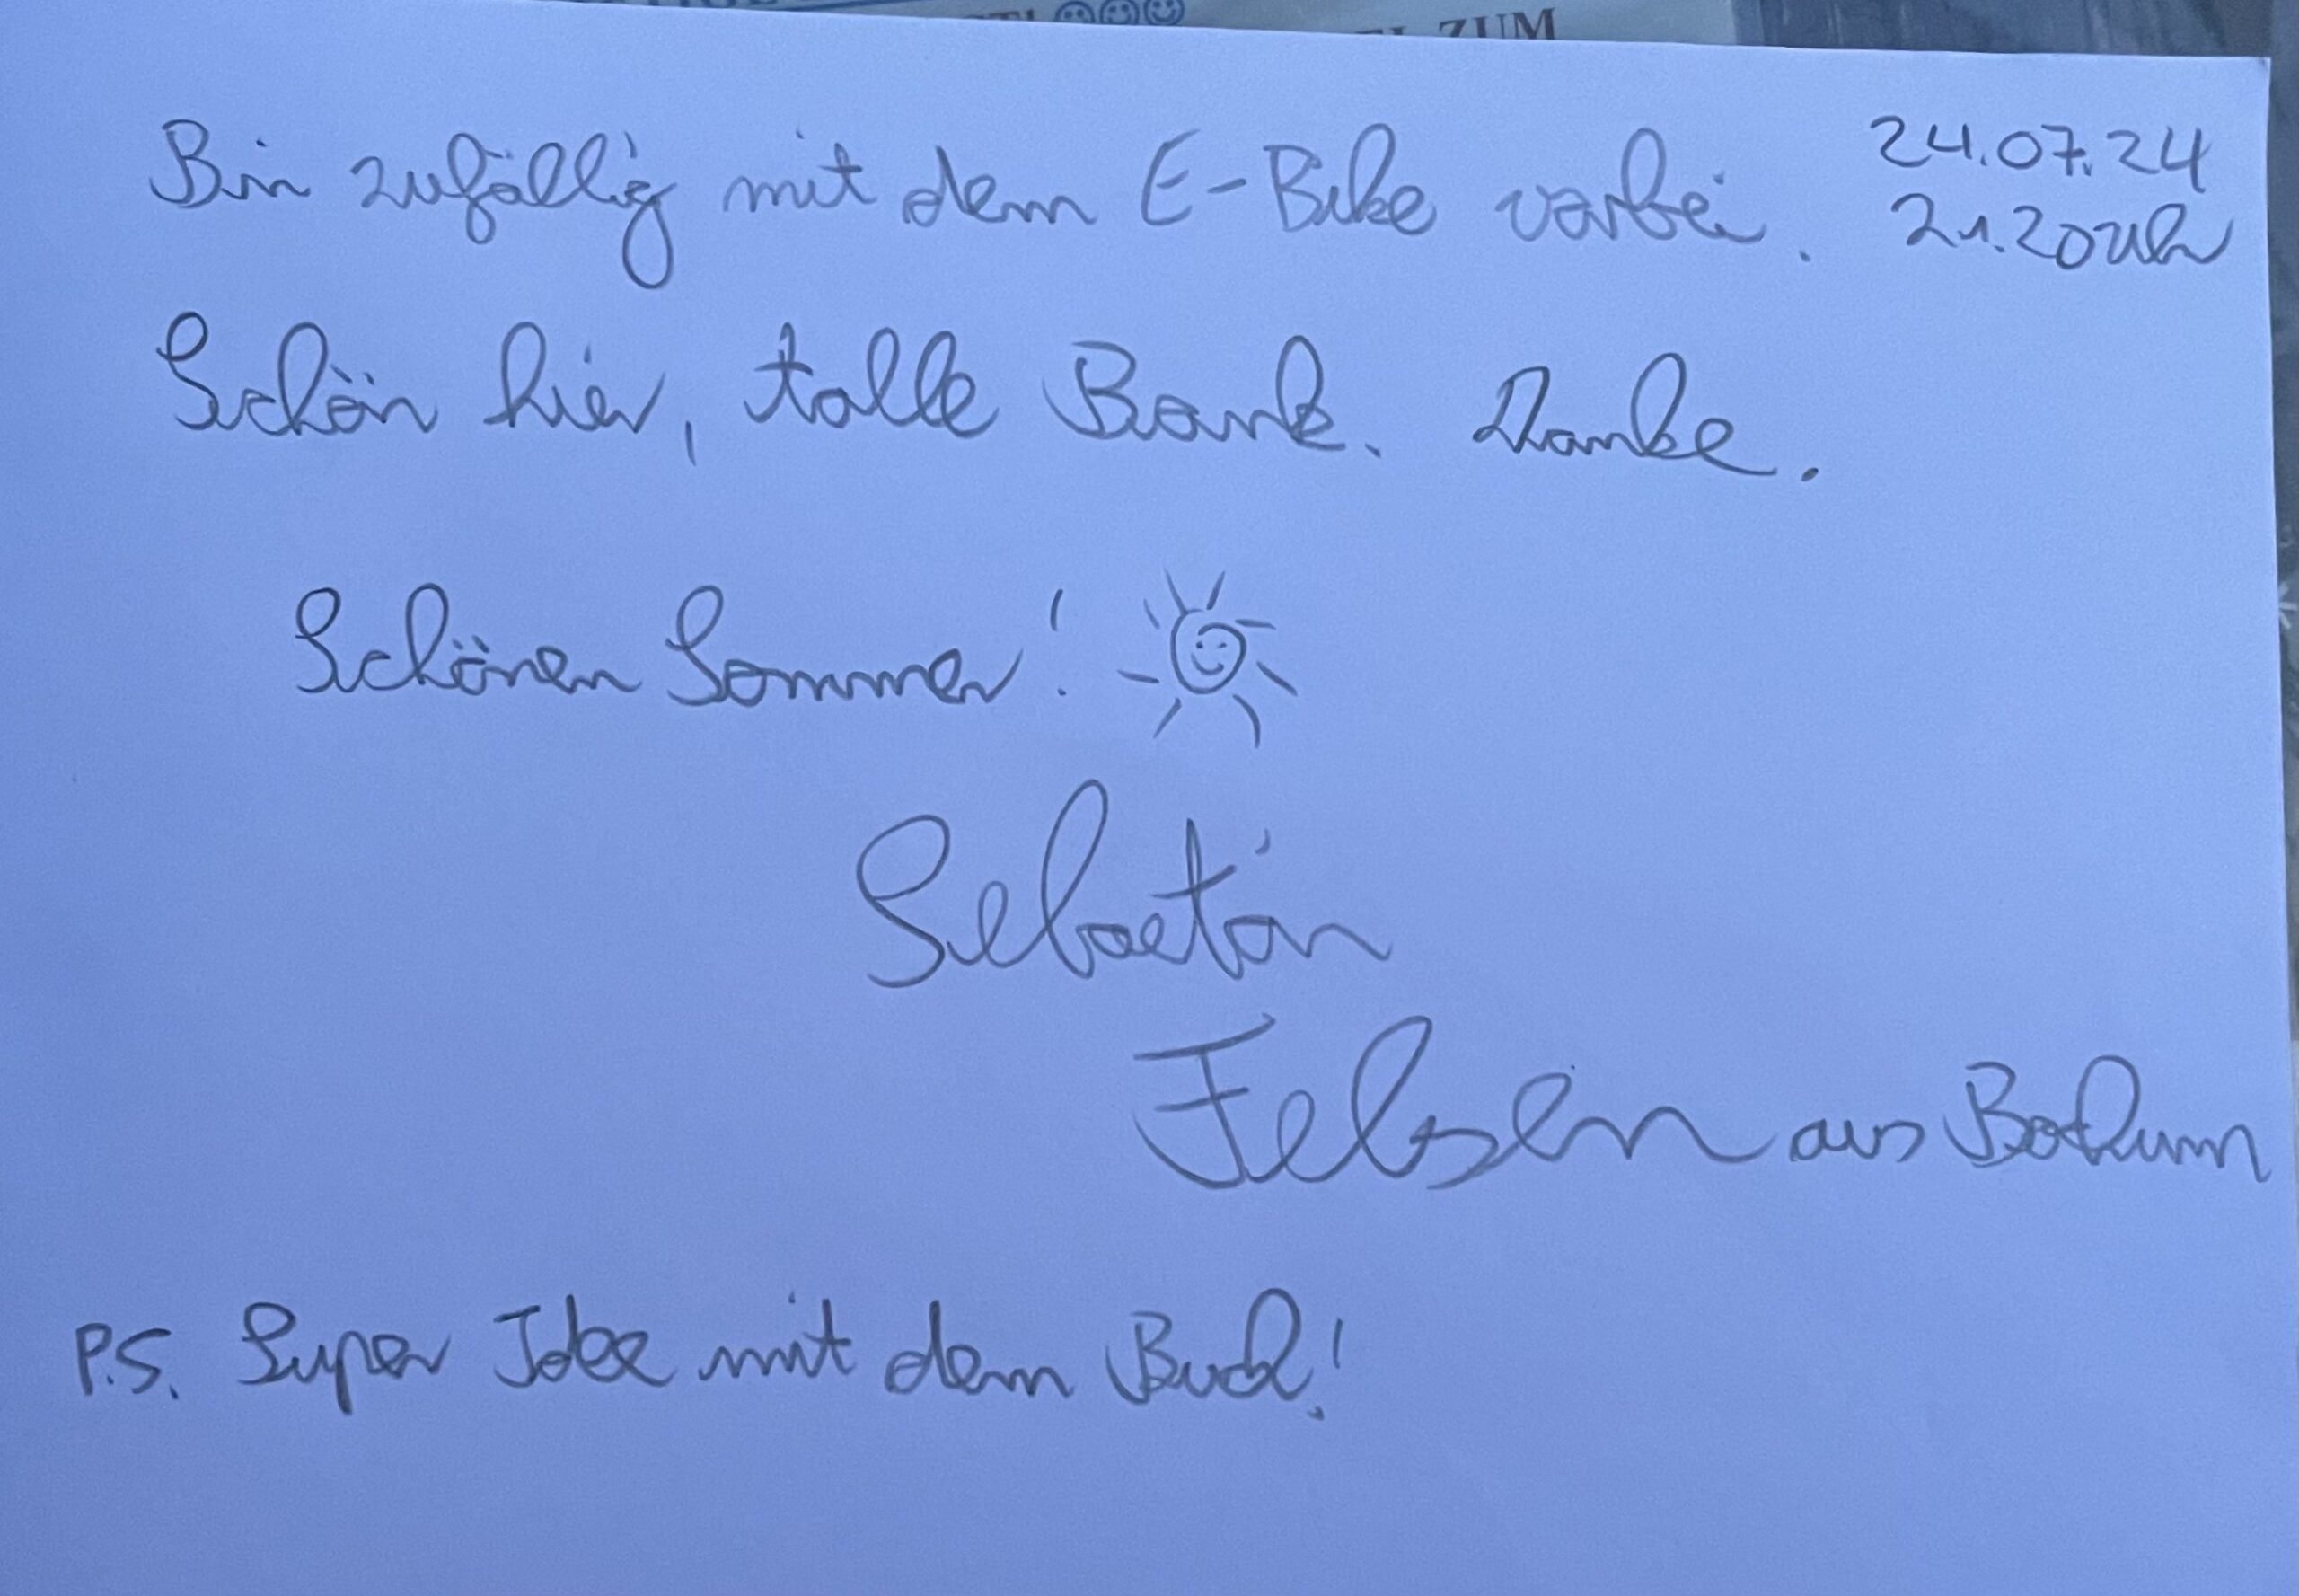 ZUM
Bin zufällig mit dem E-Bike vorbei.
24.07.24
21.20 Uhr
Schön hier, tolle Bank. Danke.
Schönen Sommer!
Sebastian
aus Bochum
P.S. Super Idee mit dem Buch!